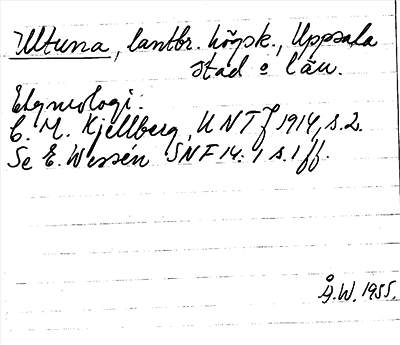 Ultuna, lantbr. högsk., Uppsala
stad o län.
Etymologi:
C. M. Kjellberg, UNTf 1914, s. 2.
Se E. Wessén SNF 14:1 s. 1 ff.
Å.W. 1955.